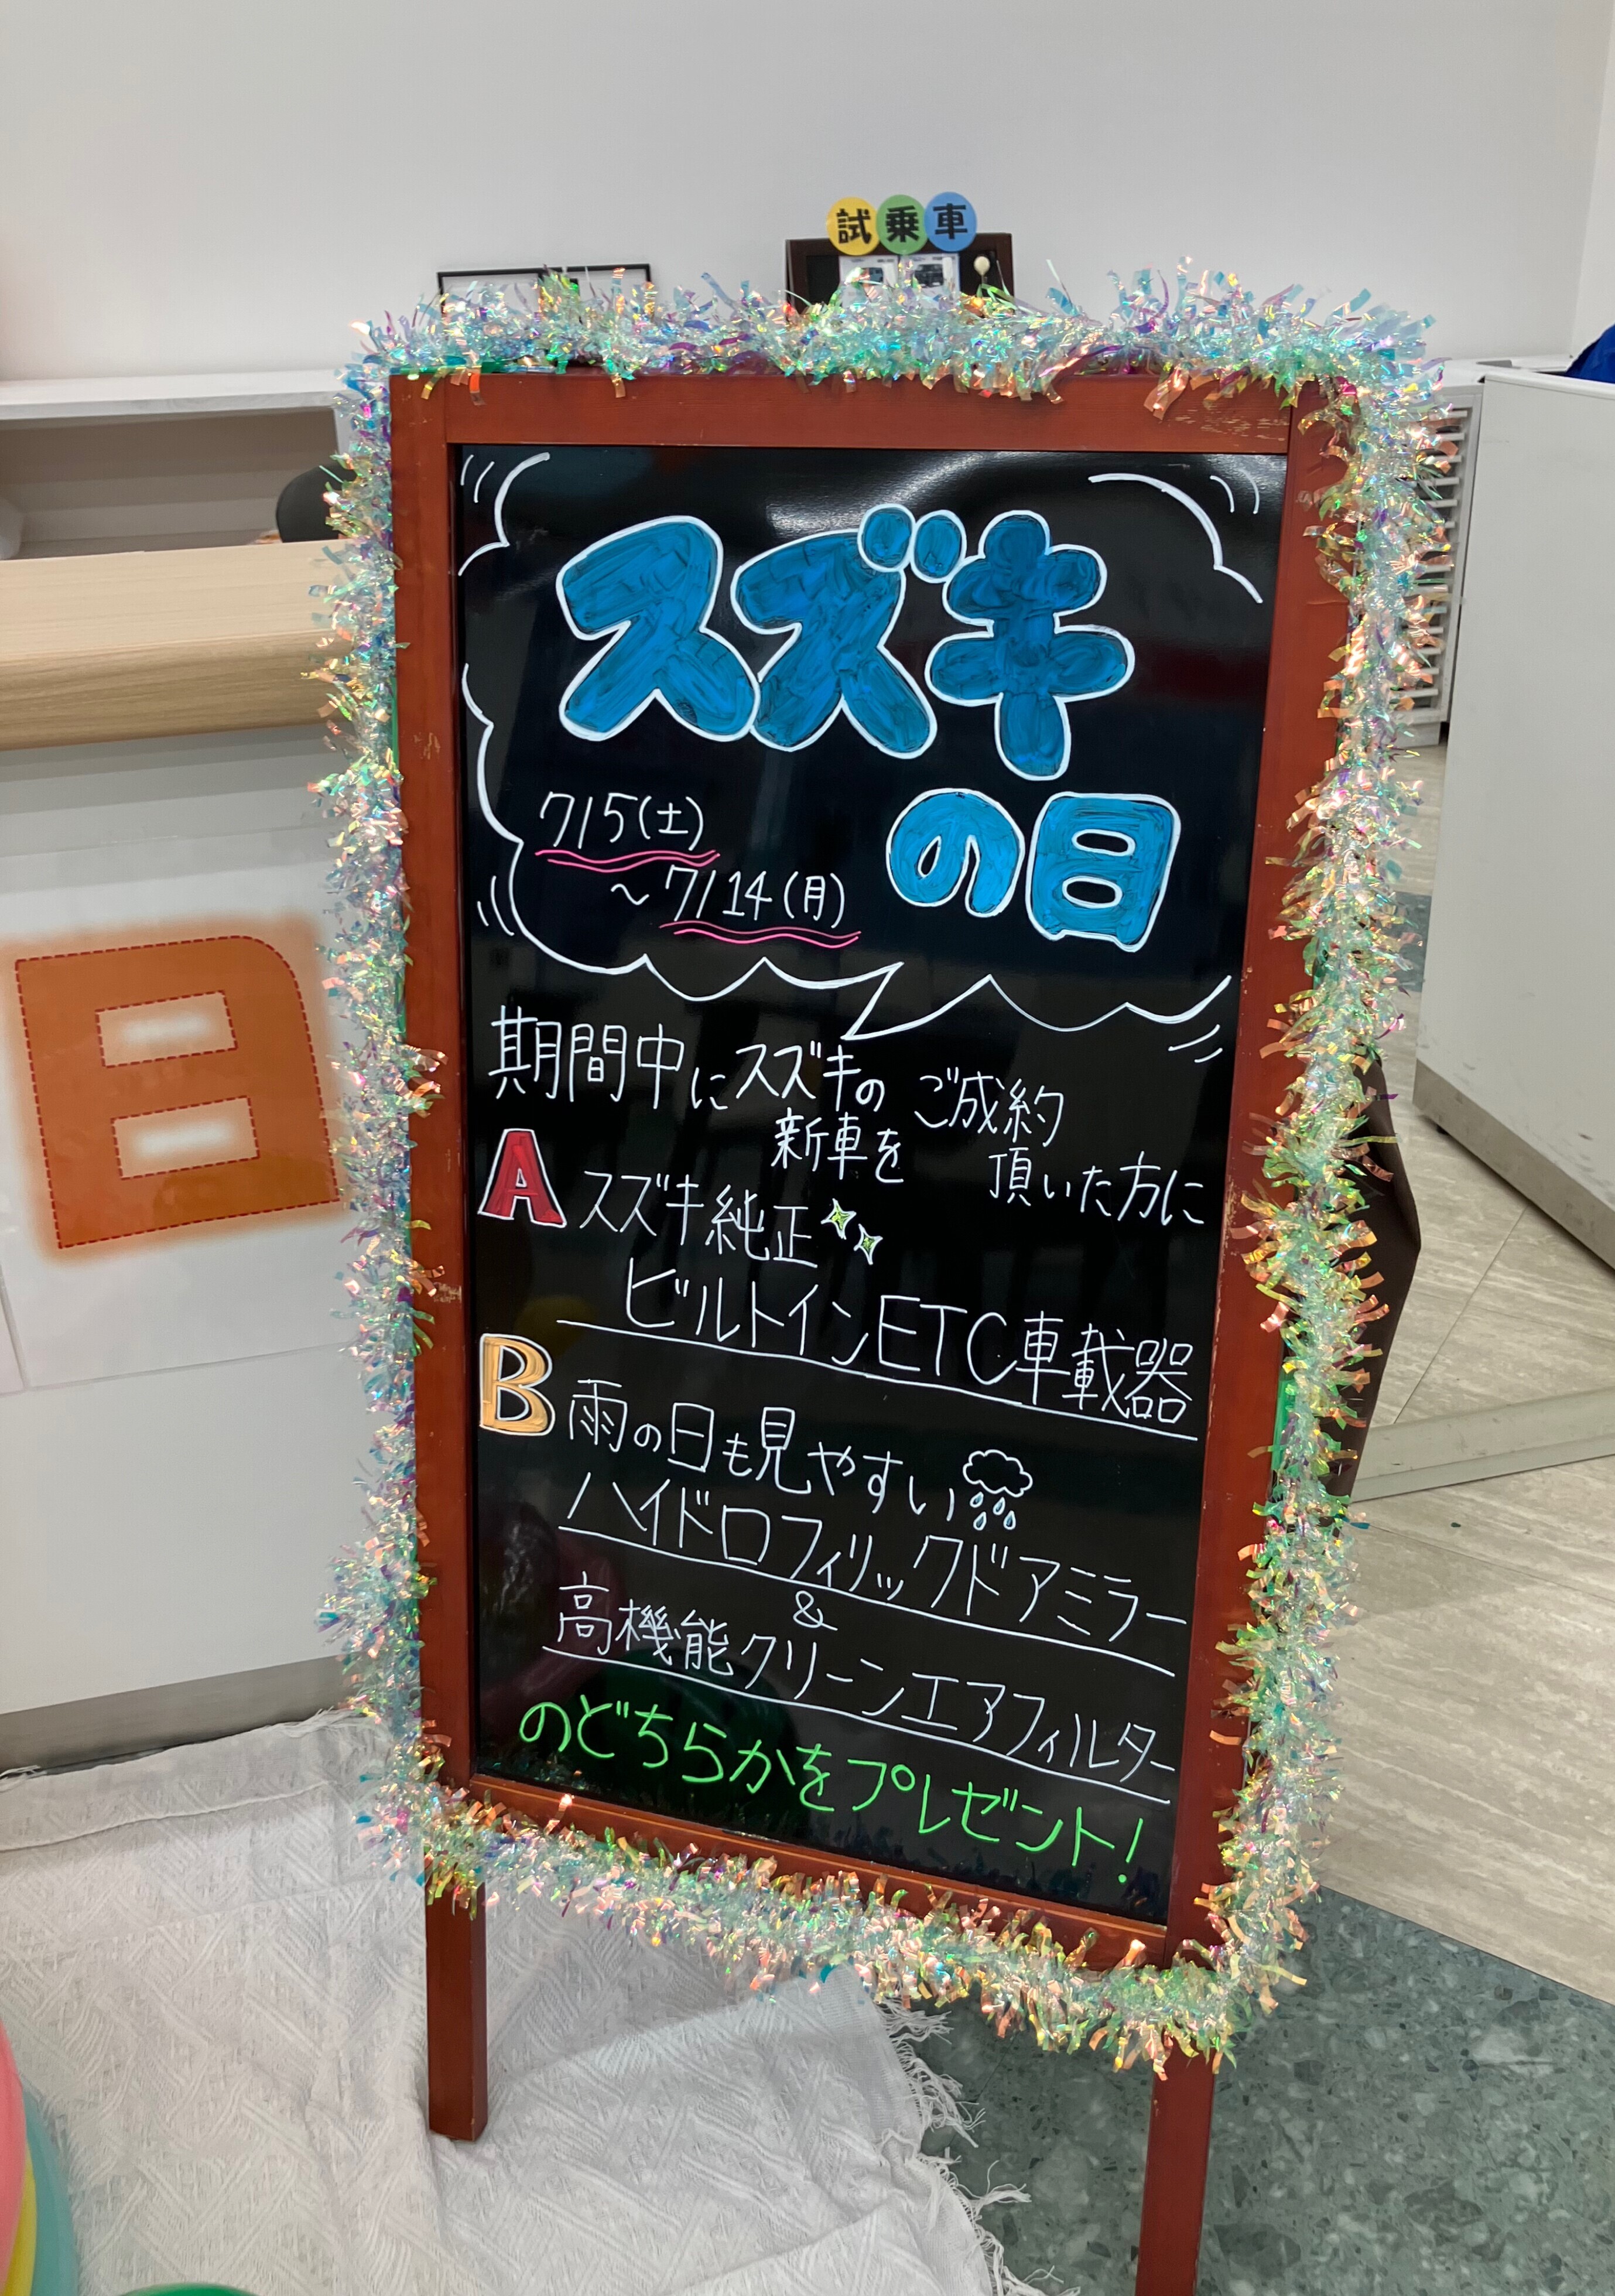 試乗車
スズキ
の日
7/5(土)
～7/14(月)
期間中にスズキの
新車を
ご成約
頂いた方に
A スズキ純正
ビルトインETC車載器
B 雨の日も見やすい
ハイドロフィリックドアミラー
&
高機能クリーンエアフィルター
のどちらかをプレゼント!
日